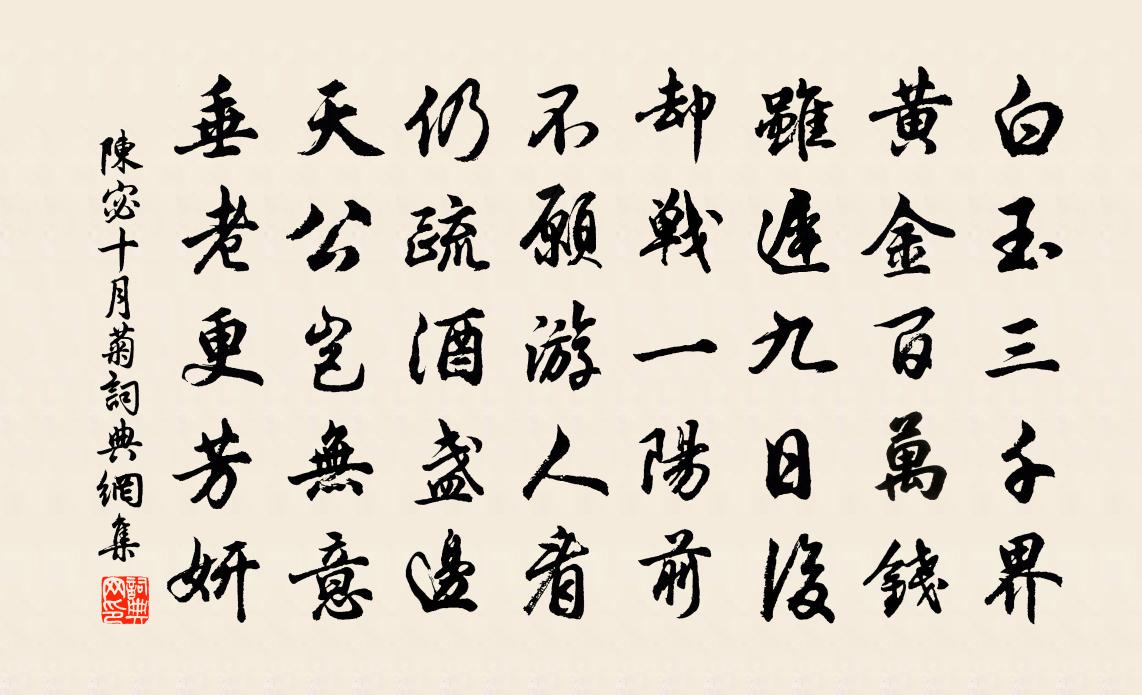 白玉三千界
黄金百萬錢
雖遲九日後
却戰一陽前
不願游人看
仍疏酒盞邊
天公豈無意
垂老更芳妍
陳宓十月菊詞典網集
詞典网印